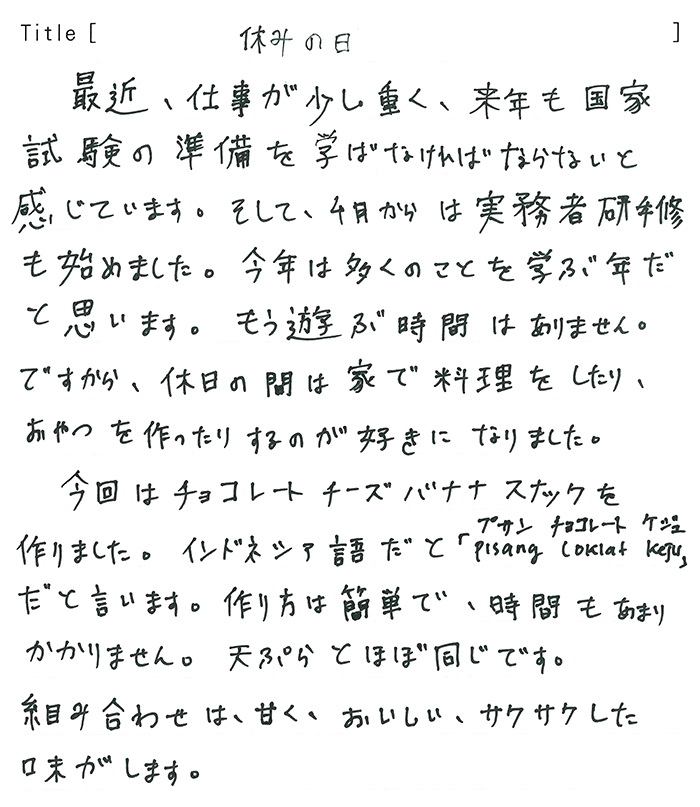 Title [ 休みの日 ]
最近、仕事が少し重く、来年も国家
試験の準備を学ばなければならないと
感じています。そして、4月からは実務者研修
も始めました。今年は多くのことを学ぶ年だ
と思います。もう遊ぶ時間はありません。
ですから、休日の間は家で料理をしたり、
おやつを作ったりするのが好きになりました。
今回はチョコレートチーズバナナスナックを
プサン チョコレート ケジュ
作りました。インドネシア語だと「pisang coklat keju」
だと言います。作り方は簡単で、時間もあまり
かかりません。天ぷらとほぼ同じです。
組み合わせは、甘く、おいしい、サクサクした
味がします。